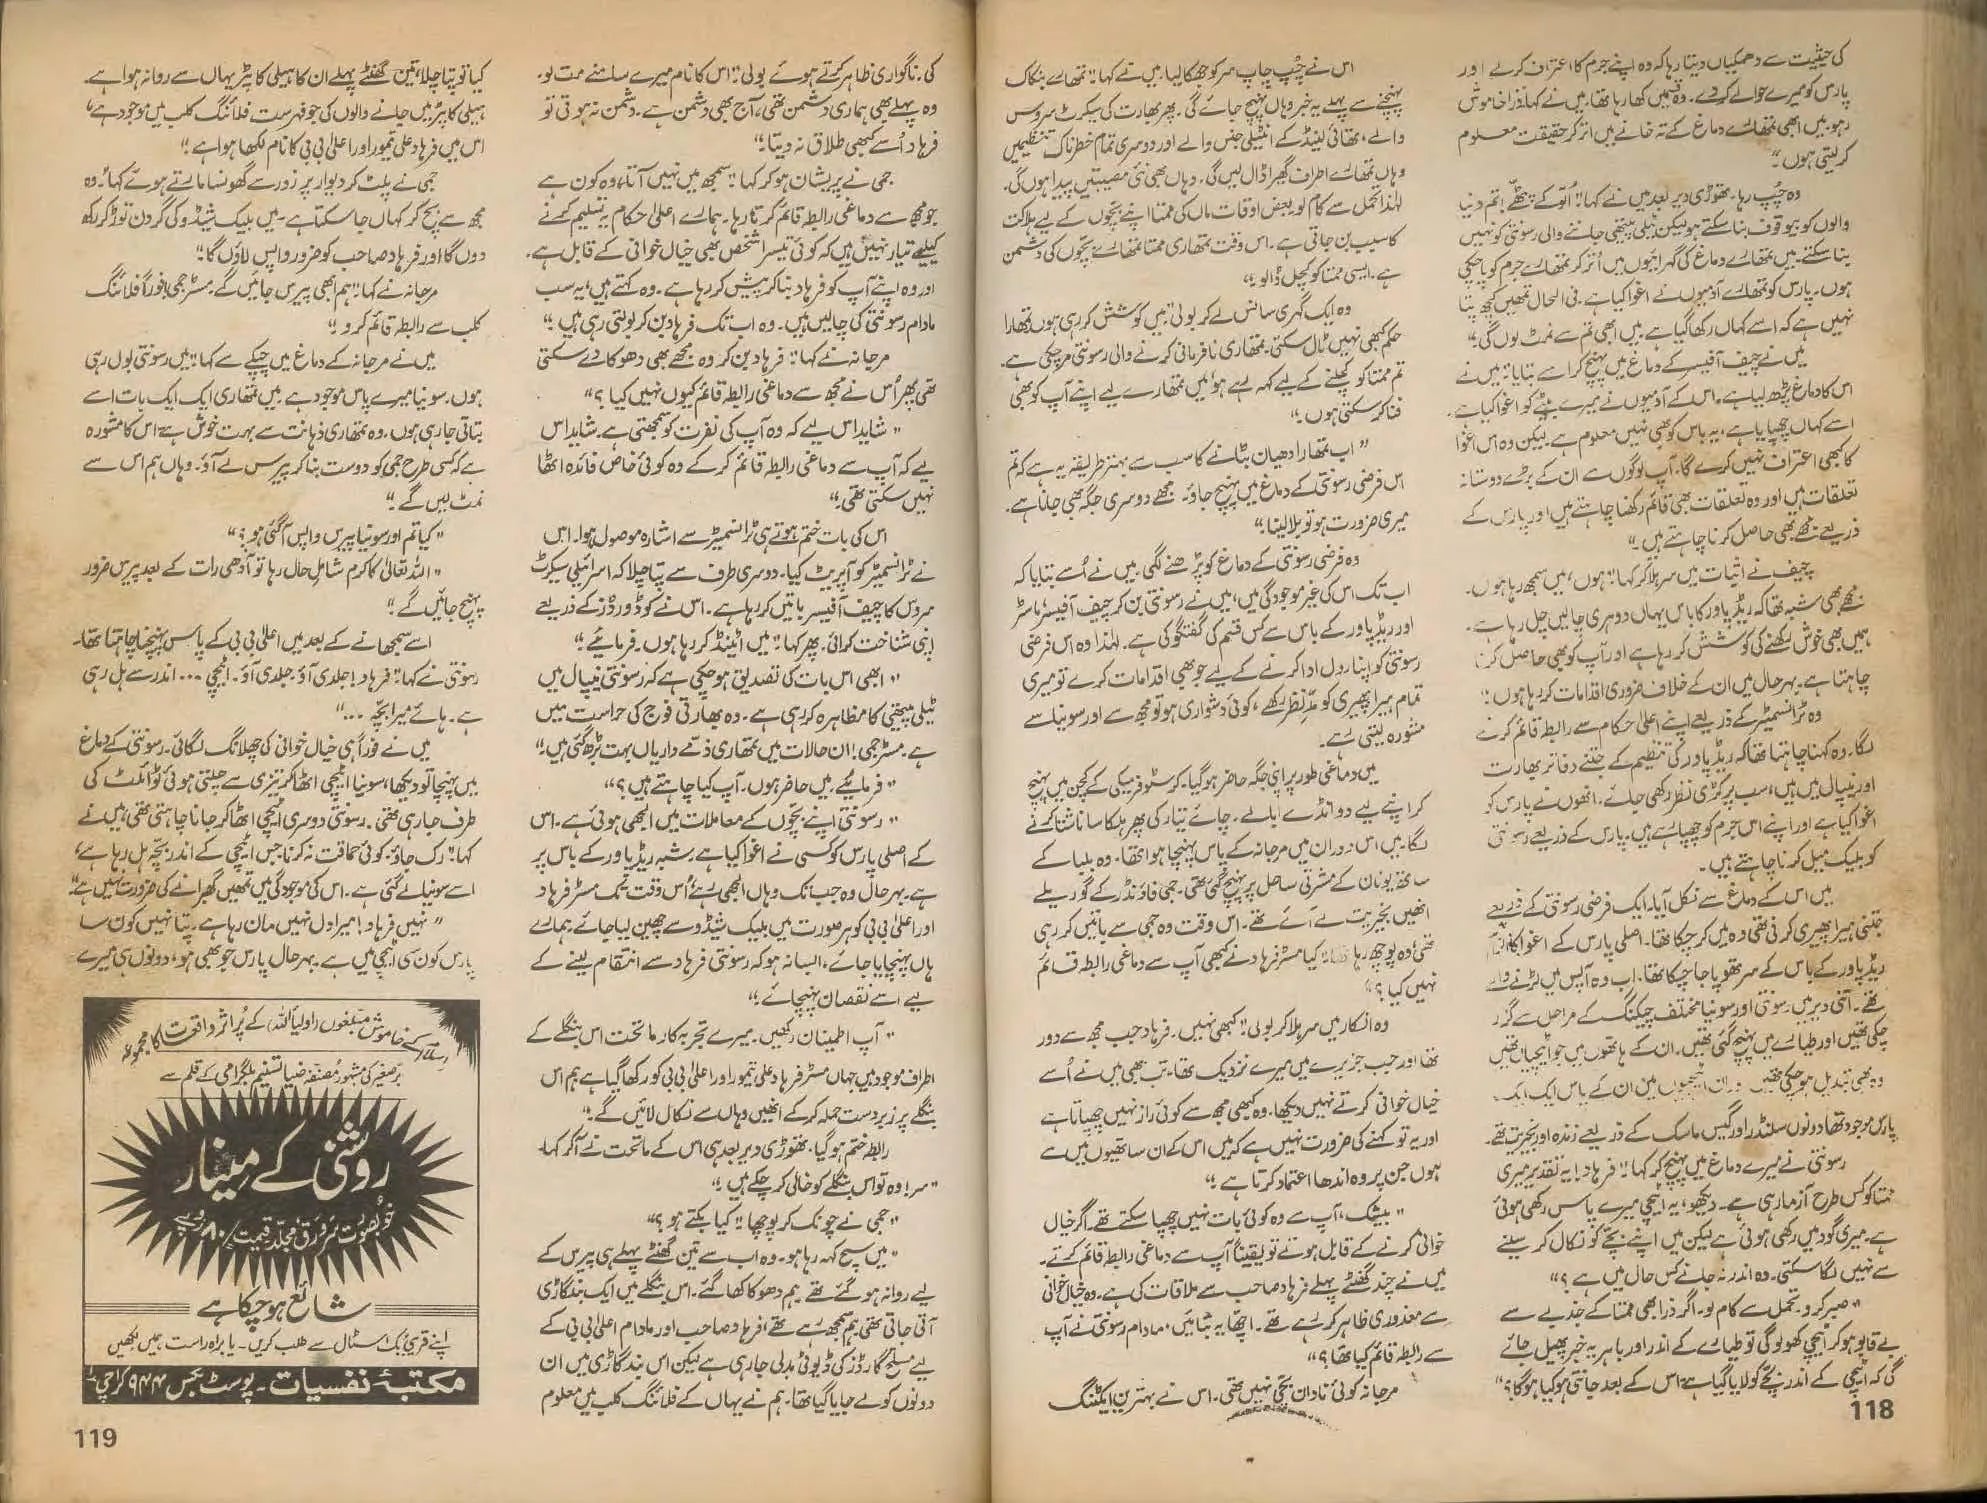 کی حیثیت سے دھمکیاں دیتا رہا کہ وہ اپنے جرم کا اعتراف کرلے اور
پارس کو میرے حوالے کر دے۔ وہ قسمیں کھا رہا تھا، میں نے کہا "ذرا خاموش
رہو، میں ابھی تمھارے دماغ کے تہ خانے میں اتر کر حقیقت معلوم
کر لیتی ہوں۔"
وہ چپ رہا۔ تھوڑی دیر بعد میں نے کہا "الو کے پٹھے! تم دنیا
والوں کو بیوقوف بنا سکتے ہو لیکن ٹیلی پیتھی جاننے والی رسونتی کو نہیں
بنا سکتے۔ میں تمھارے دماغ کی گہرائیوں میں اُتر کر تمھارے جرم کو پا چکی
ہوں۔ پارس کو تمھارے آدمیوں نے اغوا کیا ہے، فی الحال تمھیں کچھ پتا
نہیں ہے کہ اسے کہاں رکھا گیا ہے۔ میں ابھی تم سے نمٹ لوں گی۔"
میں نے چیف آفیسر کے دماغ میں پہنچ کر اسے بتایا "میں نے
اس کا دماغ پڑھ لیا ہے۔ اس کے آدمیوں نے میرے بیٹے کو اغوا کیا ہے۔
اسے کہاں چھپایا ہے، یہ باس کو بھی نہیں معلوم ہے لیکن وہ اس اغوا
کا کبھی اعتراف نہیں کرے گا۔ آپ لوگوں سے ان کے بڑے دوستانہ
تعلقات ہیں اور وہ تعلقات بھی قائم رکھنا چاہتے ہیں اور پارس کے
ذریعے مجھے بھی حاصل کرنا چاہتے ہیں۔"
چیف نے اثبات میں سر ہلا کر کہا "ہوں، میں سمجھ رہا ہوں۔
مجھے بھی شبہ تھا کہ ریڈ پاور کا باس یہاں دوہری چالیں چل رہا ہے۔
ہمیں بھی خوش رکھنے کی کوشش کر رہا ہے اور آپ کو بھی حاصل کرنا
چاہتا ہے۔ بہرحال میں ان کے خلاف ضروری اقدامات کر رہا ہوں۔"
وہ ٹرانسمیٹر کے ذریعے اپنے اعلیٰ حکام سے رابطہ قائم کرنے
لگا۔ وہ کہنا چاہتا تھا کہ ریڈ پاور کی تنظیم کے جتنے دفاتر بھارت
اور نیپال میں ہیں، سب پر کڑی نظر رکھی جائے۔ انھوں نے پارس کو
اغوا کیا ہے اور اپنے اس جرم کو چھپا رہے ہیں۔ پارس کے ذریعے رسونتی
کو بلیک میل کرنا چاہتے ہیں۔
میں اس کے دماغ سے نکل آیا۔ ایک فرضی رسونتی کے ذریعے
جتنی ہیرا پھیری کرنی تھی وہ میں کر چکا تھا۔ اصلی پارس کے اغوا کا الزام
ریڈ پاور کے باس کے سر تھوپا جا چکا تھا۔ اب وہ آپس میں لڑنے والے
تھے۔ اتنی دیر میں رسونتی اور سونیا مختلف چیکنگ کے مراحل سے گزر
چکی تھیں اور طیارے میں پہنچ گئی تھیں۔ ان کے ہاتھوں میں جو اٹیچیاں تھیں
وہ بھی تبدیل ہو چکی تھیں اور ان اٹیچیوں میں ان کے پاس ایک ایک
پارس موجود تھا، دونوں سلنڈر اور گیس ماسک کے ذریعے زندہ اور بخیریت تھے۔
رسونتی نے میرے دماغ میں پہنچ کر کہا "فرہاد! یہ تقدیر میری
ممتا کو کس طرح آزما رہی ہے۔ دیکھو، یہ اٹیچی میرے پاس رکھی ہوئی
ہے۔ میری گود میں رکھی ہوئی ہے لیکن میں اپنے بچے کو نکال کر سینے
سے نہیں لگا سکتی۔ وہ اندر نہ جانے کس حال میں ہے؟"
"صبر کرو۔ تحمل سے کام لو۔ اگر ذرا بھی ممتا کے جذبے سے
بے قابو ہو کر اٹیچی کھولو گی تو طیارے کے اندر اور باہر یہ خبر پھیل جائے
گی کہ اٹیچی کے اندر بچے کو لایا گیا ہے، اس کے بعد جانتی ہو کیا ہوگا؟"
118
اس نے چپ چاپ سر کو جھکا لیا۔ میں نے کہا "تمھارے بنکاک
پہنچنے سے پہلے یہ خبر وہاں پہنچ جائے گی۔ پھر بھارت کی سیکرٹ سروس
والے، تھائی لینڈ کے انٹیلی جنس والے اور دوسری تمام خطرناک تنظیمیں
وہاں تمھارے اطراف گھیرا ڈال لیں گی۔ وہاں بھی نئی مصیبتیں پیدا ہوں گی۔
لہٰذا تحمل سے کام لو۔ بعض اوقات ماں کی ممتا اپنے بچوں کے لیے ہلاکت
کا سبب بن جاتی ہے۔ اس وقت تمھاری ممتا تمھارے بچوں کی دشمن
ہے۔ ایسی ممتا کو کچل ڈالو۔"
وہ ایک گہری سانس لے کر بولی "میں کوشش کر رہی ہوں، تمھارا
حکم کبھی نہیں ٹال سکتی۔ تمھاری نافرمانی کرنے والی رسونتی مر چکی ہے۔
تم ممتا کو کچلنے کے لیے کہہ رہے ہو، میں تمھارے لیے اپنے آپ کو بھی
فنا کر سکتی ہوں۔"
"اب تمھارا دھیان بٹانے کا سب سے بہتر طریقہ یہ ہے کہ تم
اس فرضی رسونتی کے دماغ میں پہنچ جاؤ۔ مجھے دوسری جگہ بھی جانا ہے۔
میری ضرورت ہو تو بلا لینا۔"
وہ فرضی رسونتی کے دماغ کو پڑھنے لگی۔ میں نے اُسے بتایا کہ
اب تک اس کی غیر موجودگی میں، میں نے رسونتی بن کر چیف آفیسر، ماسٹر
اور ریڈ پاور کے باس سے کس قسم کی گفتگو کی ہے۔ لہٰذا وہ اس فرضی
رسونتی کو اپنا رول ادا کرنے کے لیے جو بھی اقدامات کرے تو میری
تمام ہیرا پھیری کو مدِّنظر رکھے، کوئی دشواری ہو تو مجھ سے اور سونیا سے
مشورہ لیتی رہے۔
میں دماغی طور پر اپنی جگہ حاضر ہوگیا۔ کرسٹوفر میکی کے کچن میں پہنچ
کر اپنے لیے دو انڈے ابالے۔ چائے تیار کی پھر ہلکا سا ناشتا کرنے
لگا۔ میں اس دوران میں مرجانہ کے پاس پہنچا ہوا تھا۔ وہ بلیا کے
ساتھ یونان کے مشرقی ساحل پر پہنچ گئی تھی۔ جمی فاؤنڈر کے گوریلے
انھیں بخیریت لے آئے تھے۔ اس وقت وہ جمی سے باتیں کر رہی
تھی۔ وہ پوچھ رہا تھا "کیا مسٹر فرہاد نے کبھی آپ سے دماغی رابطہ قائم
نہیں کیا؟"
وہ انکار میں سر ہلا کر بولی "کبھی نہیں۔ فرہاد جب مجھ سے دور
تھا اور جب جزیرے میں میرے نزدیک تھا۔ تب بھی میں نے اُسے
خیال خوانی کرتے نہیں دیکھا۔ وہ کبھی مجھ سے کوئی راز نہیں چھپاتا ہے
اور یہ تو کہنے کی ضرورت نہیں ہے کہ میں اس کے ان ساتھیوں میں سے
ہوں جن پر وہ اندھا اعتماد کرتا ہے۔"
"بیشک، آپ سے وہ کوئی بات نہیں چھپا سکتے تھے۔ اگر خیال
خوانی کرنے کے قابل ہوتے تو یقیناً آپ سے دماغی رابطہ قائم کرتے۔
میں نے چند گھنٹے پہلے فرہاد صاحب سے ملاقات کی ہے۔ وہ خیال خوانی
سے معذوری ظاہر کر رہے تھے۔ اچھا یہ بتائیں، مادام رسونتی نے آپ
سے رابطہ قائم کیا تھا؟"
مرجانہ کوئی نادان بچی نہیں تھی۔ اس نے بہترین ایکٹنگ
کی۔ ناگواری ظاہر کرتے ہوئے بولی "اس کا نام میرے سامنے مت لو۔
وہ پہلے بھی ہماری دشمن تھی، آج بھی دشمن ہے۔ دشمن نہ ہوتی تو
فرہاد اُسے کبھی طلاق نہ دیتا۔"
جمی نے پریشان ہو کر کہا "سمجھ میں نہیں آتا، وہ کون ہے
جو مجھ سے دماغی رابطہ قائم کرتا رہا۔ ہمارے اعلیٰ حکام یہ تسلیم کرنے
کیلئے تیار نہیں ہیں کہ کوئی تیسرا شخص بھی خیال خوانی کے قابل ہے۔
اور وہ اپنے آپ کو فرہاد بنا کر پیش کر رہا ہے۔ وہ کہتے ہیں، یہ سب
مادام رسونتی کی چالیں ہیں۔ وہ اب تک فرہاد بن کر بولتی رہی ہیں۔"
مرجانہ نے کہا "فرہاد بن کر وہ مجھے بھی دھوکا دے سکتی
تھی پھر اُس نے مجھ سے دماغی رابطہ قائم کیوں نہیں کیا؟"
"شاید اس لیے کہ وہ آپ کی نفرت کو سمجھتی ہے۔ شاید اس
لیے کہ آپ سے دماغی رابطہ قائم کر کے وہ کوئی خاص فائدہ اٹھا
نہیں سکتی تھی۔"
اس کی بات ختم ہوتے ہی ٹرانسمیٹر سے اشارہ موصول ہوا۔ اس
نے ٹرانسمیٹر کو آپریٹ کیا۔ دوسری طرف سے پتا چلا کہ اسرائیلی سیکرٹ
سروس کا چیف آفیسر باتیں کر رہا ہے۔ اس نے کوڈ ورڈز کے ذریعے
اپنی شناخت کرائی۔ پھر کہا "میں اٹینڈ کر رہا ہوں۔ فرمائیے۔"
"ابھی اس بات کی تصدیق ہو چکی ہے کہ رسونتی نیپال میں
ٹیلی پیتھی کا مظاہرہ کر رہی ہے۔ وہ بھارتی فوج کی حراست میں
ہے۔ مسٹر جمی! ان حالات میں تمھاری ذمے داریاں بہت بڑھ گئی ہیں۔"
"فرمائیے، میں حاضر ہوں۔ آپ کیا چاہتے ہیں؟"
"رسونتی اپنے بچوں کے معاملات میں الجھی ہوئی ہے۔ اس
کے اصلی پارس کو کسی نے اغوا کیا ہے۔ شبہ ریڈ پاور کے باس پر
ہے۔ بہرحال وہ جب تک وہاں الجھی رہے، اُس وقت تک مسٹر فرہاد
اور اعلیٰ بی بی کو ہر صورت میں بلیک شیڈو سے چھین لیا جائے۔ ہمارے
ہاں پہنچایا جائے، ایسا نہ ہو کہ رسونتی فرہاد سے انتقام لینے کے
لیے اسے نقصان پہنچائے۔"
"آپ اطمینان رکھیں۔ میرے تجربہ کار ماتحت اس بنگلے کے
اطراف موجود ہیں جہاں مسٹر فرہاد علی تیمور اور اعلیٰ بی بی کو رکھا گیا ہے۔ ہم اس
بنگلے پر زبردست حملہ کر کے انھیں وہاں سے نکال لائیں گے۔"
رابطہ ختم ہوگیا۔ تھوڑی دیر بعد ہی اس کے ماتحت نے آ کر کہا۔
"سر! وہ تو اس بنگلے کو خالی کر چکے ہیں۔"
جمی نے چونک کر پوچھا "کیا بکتے ہو؟"
"میں سچ کہہ رہا ہو۔ وہ اب سے تین گھنٹے پہلے ہی پیرس کے
لیے روانہ ہو گئے تھے۔ ہم دھوکا کھا گئے۔ اس بنگلے میں ایک بند گاڑی
آتی جاتی تھی۔ ہم سمجھ رہے تھے، فرہاد صاحب اور مادام اعلیٰ بی بی کے
لیے مسلح گارڈز کی ڈیوٹی بدلی جا رہی ہے لیکن اس بند گاڑی میں ان
دونوں کو لے جایا گیا تھا۔ ہم نے یہاں کے فلائنگ کلب میں معلوم
کیا تو پتا چلا، تین گھنٹے پہلے ان کا ہیلی کاپٹر یہاں سے روانہ ہوا ہے۔
ہیلی کاپٹر میں جانے والوں کی جو فہرست فلائنگ کلب میں موجود ہے،
اس میں فرہاد علی تیمور اور اعلیٰ بی بی کا نام لکھا ہوا ہے۔"
جمی نے پلٹ کر دیوار پر زور سے گھونسا مارتے ہوئے کہا "وہ
مجھ سے بچ کر کہاں جا سکتا ہے۔ میں بلیک شیڈو کی گردن توڑ کر رکھ
دوں گا اور فرہاد صاحب کو ضرور واپس لاؤں گا۔"
مرجانہ نے کہا "ہم ابھی پیرس جائیں گے۔ مسٹر جمی! فوراً فلائنگ
کلب سے رابطہ قائم کرو۔"
میں نے مرجانہ کے دماغ میں چپکے سے کہا "میں رسونتی بول رہی
ہوں۔ سونیا میرے پاس موجود ہے۔ میں تمھاری ایک ایک بات اسے
بتاتی جا رہی ہوں۔ وہ تمھاری ذہانت سے بہت خوش ہے۔ اس کا مشورہ
ہے کہ کسی طرح جمی کو دوست بنا کر پیرس لے آؤ۔ وہاں ہم اس سے
نمٹ لیں گے۔"
"کیا تم اور سونیا پیرس واپس آگئی ہو؟"
"اللہ تعالیٰ کا کرم شاملِ حال رہا تو آدھی رات کے بعد پیرس ضرور
پہنچ جائیں گے۔"
اسے سمجھانے کے بعد میں اعلیٰ بی بی کے پاس پہنچنا چاہتا تھا۔
رسونتی نے کہا "فرہاد! جلدی آؤ۔ جلدی آؤ۔ اٹیچی ... اندر سے ہل رہی
ہے۔ ہائے میرا بچّہ ..."
میں نے فوراً ہی خیال خوانی کی چھلانگ لگائی۔ رسونتی کے دماغ
میں پہنچا تو دیکھا، سونیا اٹیچی اٹھا کر تیزی سے چلتی ہوئی ٹوائلٹ کی
طرف جا رہی تھی۔ رسونتی دوسری اٹیچی اٹھا کر جانا چاہتی تھی، میں نے
کہا "رک جاؤ۔ کوئی حماقت نہ کرنا۔ جس اٹیچی کے اندر بچّہ ہل رہا ہے،
اسے سونیا لے گئی ہے۔ اس کی موجودگی میں تمھیں گھبرانے کی ضرورت نہیں ہے۔"
"نہیں فرہاد! میرا دل نہیں مان رہا ہے۔ پتا نہیں کون سا
پارس کون سی اٹیچی میں ہے۔ بہرحال پارس جو بھی ہو، دونوں ہی میرے
اسلام کے خاموش مبلغوں (اولیا اللہ) کے پُر اثر واقعات کا مجموعہ
برصغیر کی مشہور مصنفہ ضیا تسنیم بلگرامی کے قلم سے
روشنی کے مینار
خوبصورت سرورق مجلد قیمت /۸۰ روپے
شائع ہو چکا ہے
اپنے قریبی بُک اسٹال سے طلب کریں۔ یا براہ راست ہمیں لکھیں
مکتبۂ نفسیات۔ پوسٹ بکس ۹۴۴ کراچی ۱
119